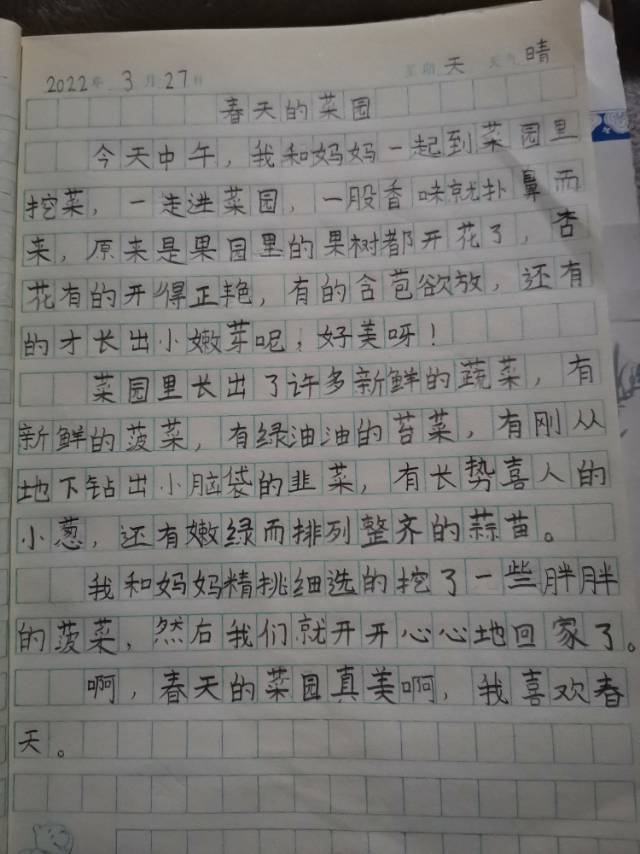 2022年 3月27日 星期天 天气晴
春天的菜园
今天中午，我和妈妈一起到菜园里
挖菜，一走进菜园，一股香味就扑鼻而
来，原来是果园里的果树都开花了，杏
花有的开得正艳，有的含苞欲放，还有
的才长出小嫩芽呢，好美呀！
菜园里长出了许多新鲜的蔬菜，有
新鲜的菠菜，有绿油油的苔菜，有刚从
地下钻出小脑袋的韭菜，有长势喜人的
小葱，还有嫩绿而排列整齐的蒜苗。
我和妈妈精挑细选的挖了一些胖胖
的菠菜，然后我们就开开心心地回家了。
啊，春天的菜园真美啊，我喜欢春
天。